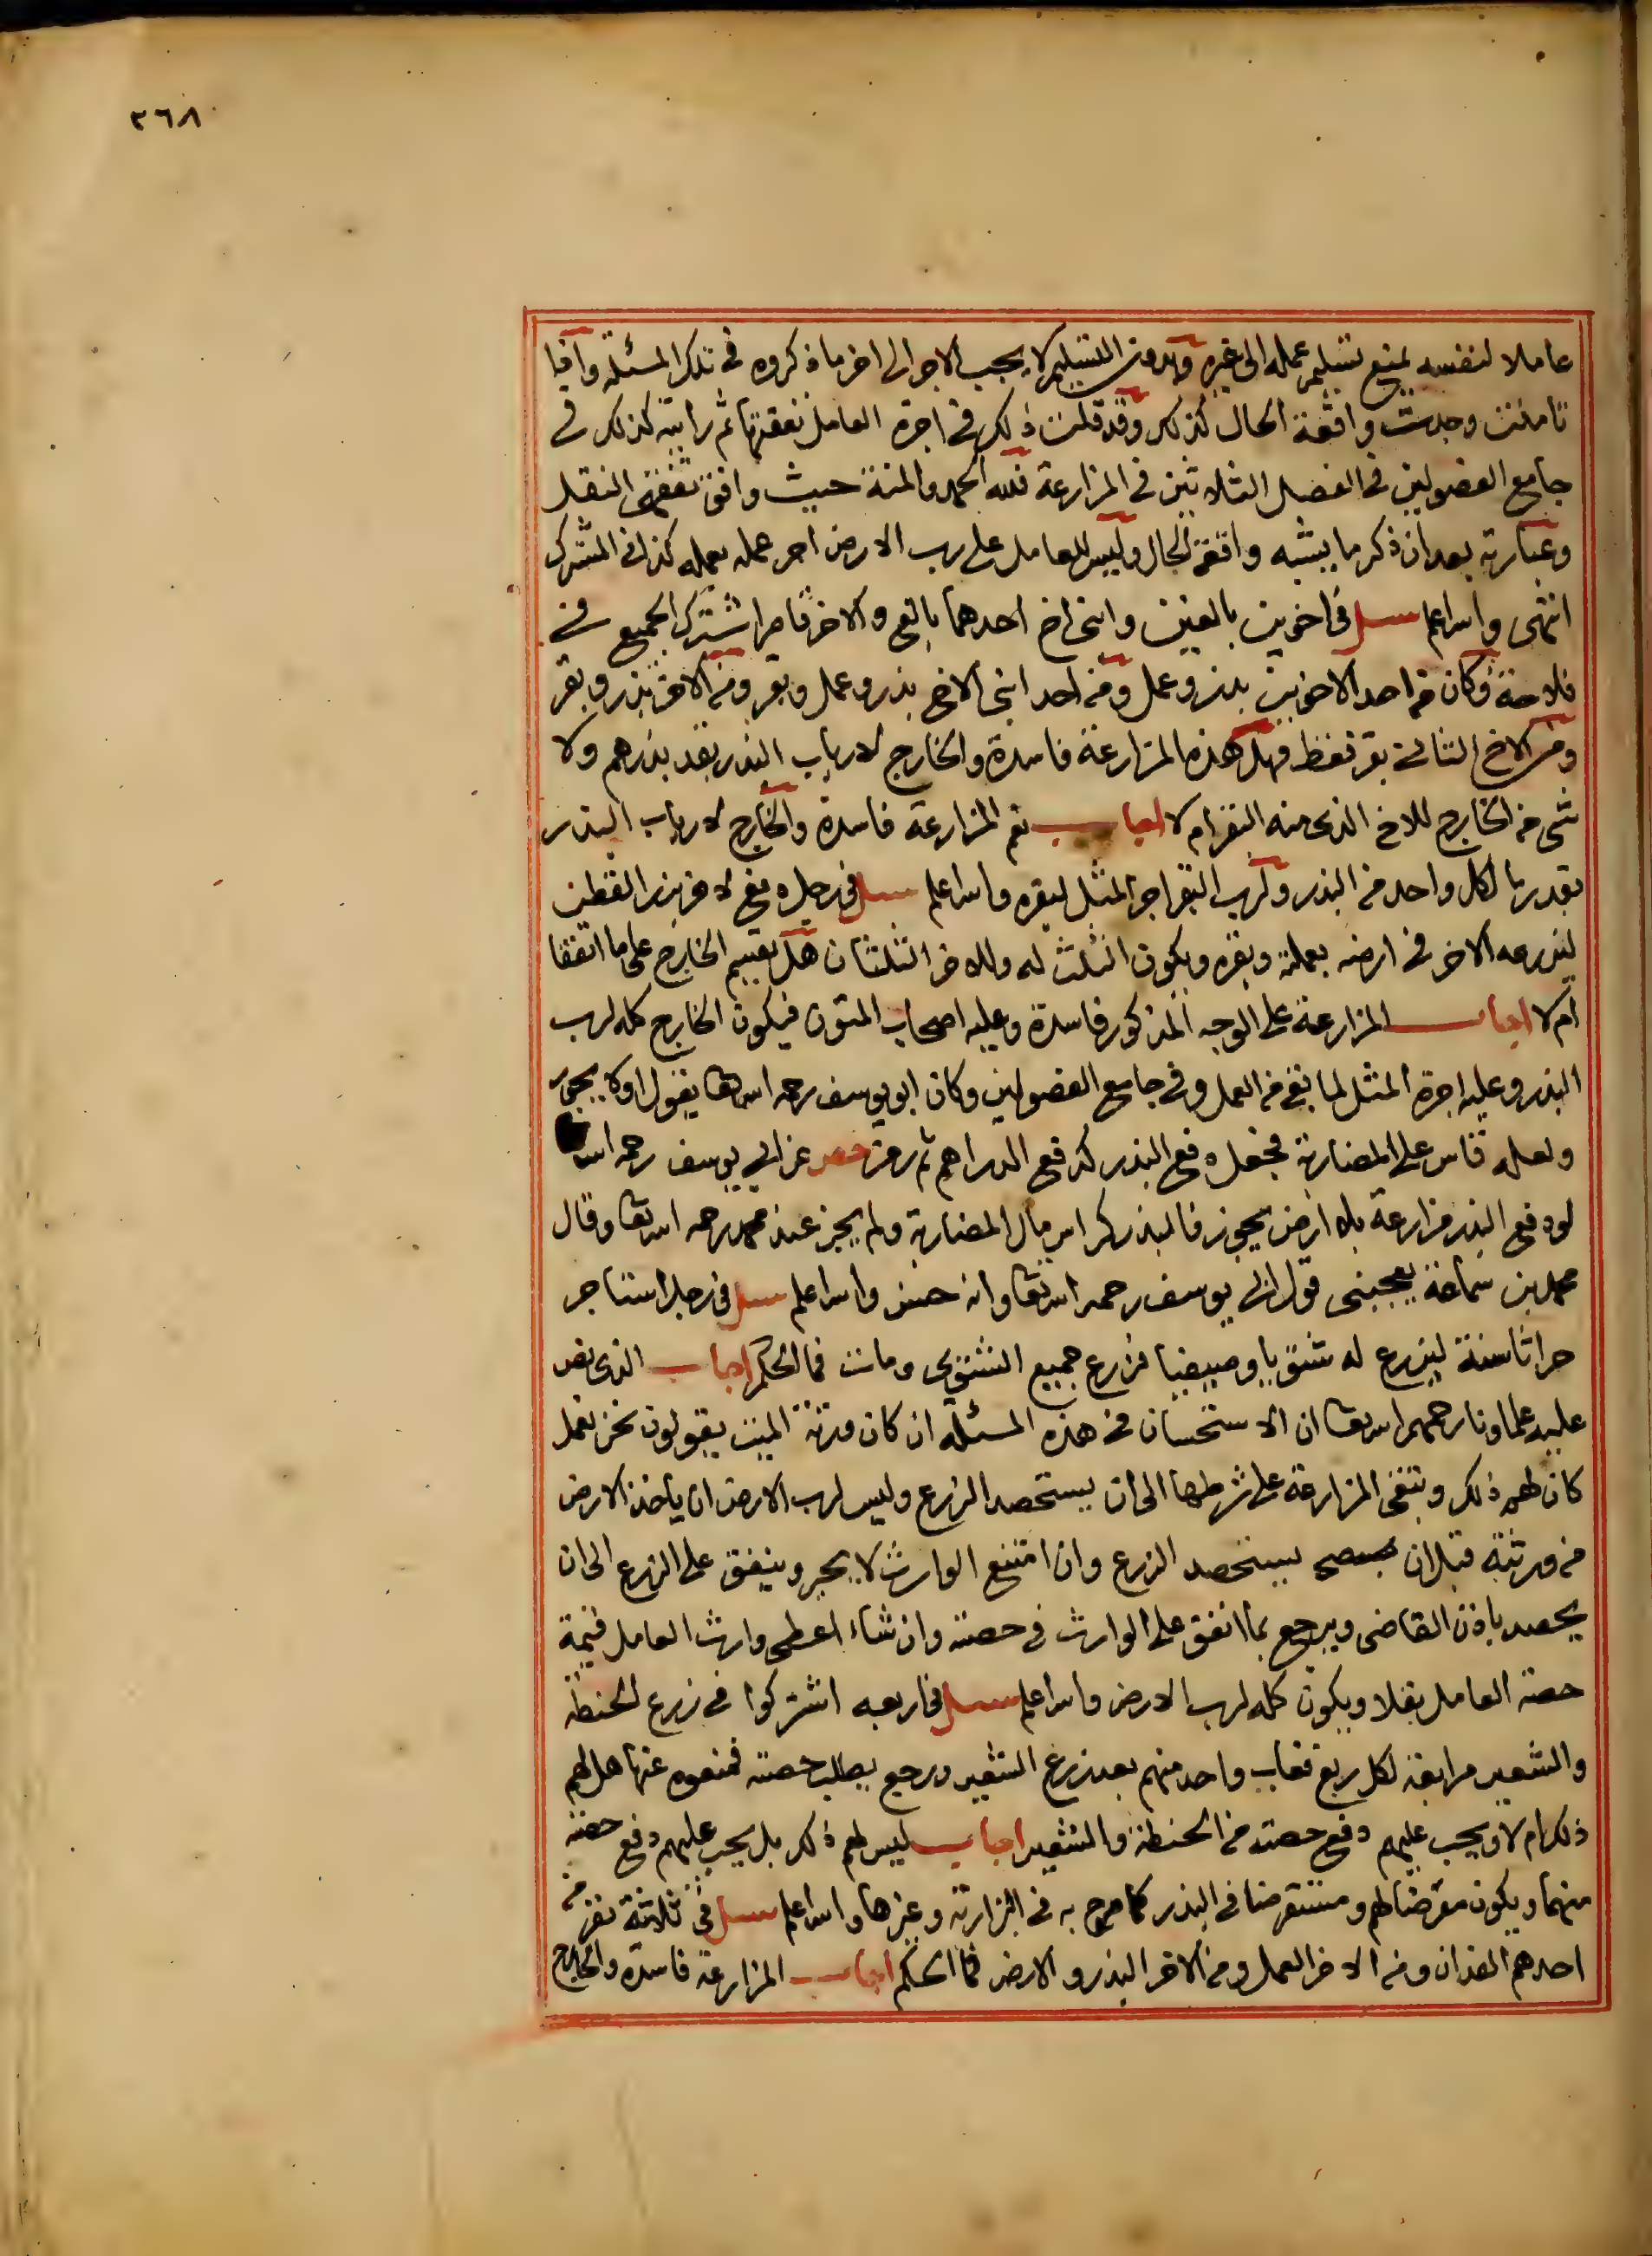 ٣٦٨
عاملا لنفسه يمنع تسليم عمله الى غيره وبدون التسليم لا يجب الاجر الى اخر ما ذكروه في تلك المسئلة واذا
تاملت وجدت واقعة الحال كذلك وقد قلت ذلك في اجرة العامل تفقها ثم رايته كذلك في
جامع الفصولين في الفصل الثلاثين في المزارعة فلله الحمد والمنة حيث وافق تفقهي النقل
وعبارته بعد ان ذكر ما يشبه واقعة الحال وليس للعامل على رب الارض اجر عمله لعمله كذا في المشترك
انتهى والله اعلم سئل في اخوين بالغين وابني اخ احدهما بالغ والاخر قاصر اشترك الجميع في
فلاحة وكان من احد الاخوين بذر وعمل ومن احد ابني الاخ بذر وعمل وبقر ومن الاخر بذر وبقر
ومن الاخ الثاني بقر فقط فهل هذه المزارعة فاسدة والخارج لارباب البذر بقدر بذرهم ولا
شي من الخارج للاخ الذي منه البقر ام لا اجاب نعم المزارعة فاسدة والخارج لارباب البذر
بقدر ما لكل واحد من البذر ولرب البقر اجر المثل لبقره والله اعلم سئل في رجل دفع لاخر بزر القطن
ليزرعه الاخر في ارضه بعمله وبقره ويكون الثلث له وللاخر الثلثان هل يقسم الخارج على ما اتفقا
ام لا اجاب المزارعة على الوجه المذكور فاسدة وعليه اصحاب المتون فيكون الخارج كله لرب
البذر وعليه اجرة المثل لما بقي من العمل وفي جامع الفصولين وكان ابو يوسف رحمه الله تعالى يقول اولا يجوز
ولعله قاس على المضاربة فجعل دفع البذر كدفع الدراهم ثم رمز عن ابي يوسف رحمه الله
لو دفع البذر مزارعة بلا ارض يجوز فالبذر كراس مال المضاربة ولم يجز عند محمد رحمه الله تعالى وقال
محمد بن سماعة يعجبني قول ابي يوسف رحمه الله تعالى وانه حسن والله اعلم سئل في رجل استاجر
حراثا سنة ليزرع له شتويا وصيفيا فزرع جميع الشتوي ومات فما الحكم اجاب الذي نص
عليه علماونا رحمهم الله تعالى ان الاستحسان في هذه المسئلة ان كان ورثة الميت يقولون نحن نعمل
كان لهم ذلك وتبقى المزارعة على شرطها الى ان يستحصد الزرع وليس لرب الارض ان ياخذ الارض
من ورثته قبل ان يستحصد الزرع وان امتنع الوارث لا يجبر وينفق على الزرع الى ان
يحصد باذن القاضي ويرجع بما انفق على الوارث في حصته وان شاء اعطى وارث العامل قيمة
حصة العامل بقلا ويكون كله لرب الارض والله اعلم سئل في اربعة اشتركوا في زرع الحنطة
والشعير مرابعة لكل ربع فغاب واحد منهم بعد زرع الشعير ورجع يطلب حصته فمنعوه عنها هل لهم
ذلك ام لا ويجب عليهم دفع حصته من الحنطة والشعير اجاب ليس لهم ذلك بل يجب عليهم دفع حصته
منهما ويكون مقرضا لهم ومستقرضا في البذر كما صرح به في البزازية وغيرها والله اعلم سئل في ثلاثة نفر من
احدهم الفدان ومن الاخر العمل ومن الاخر البذر والارض فما الحكم اجاب المزارعة فاسدة والخارج